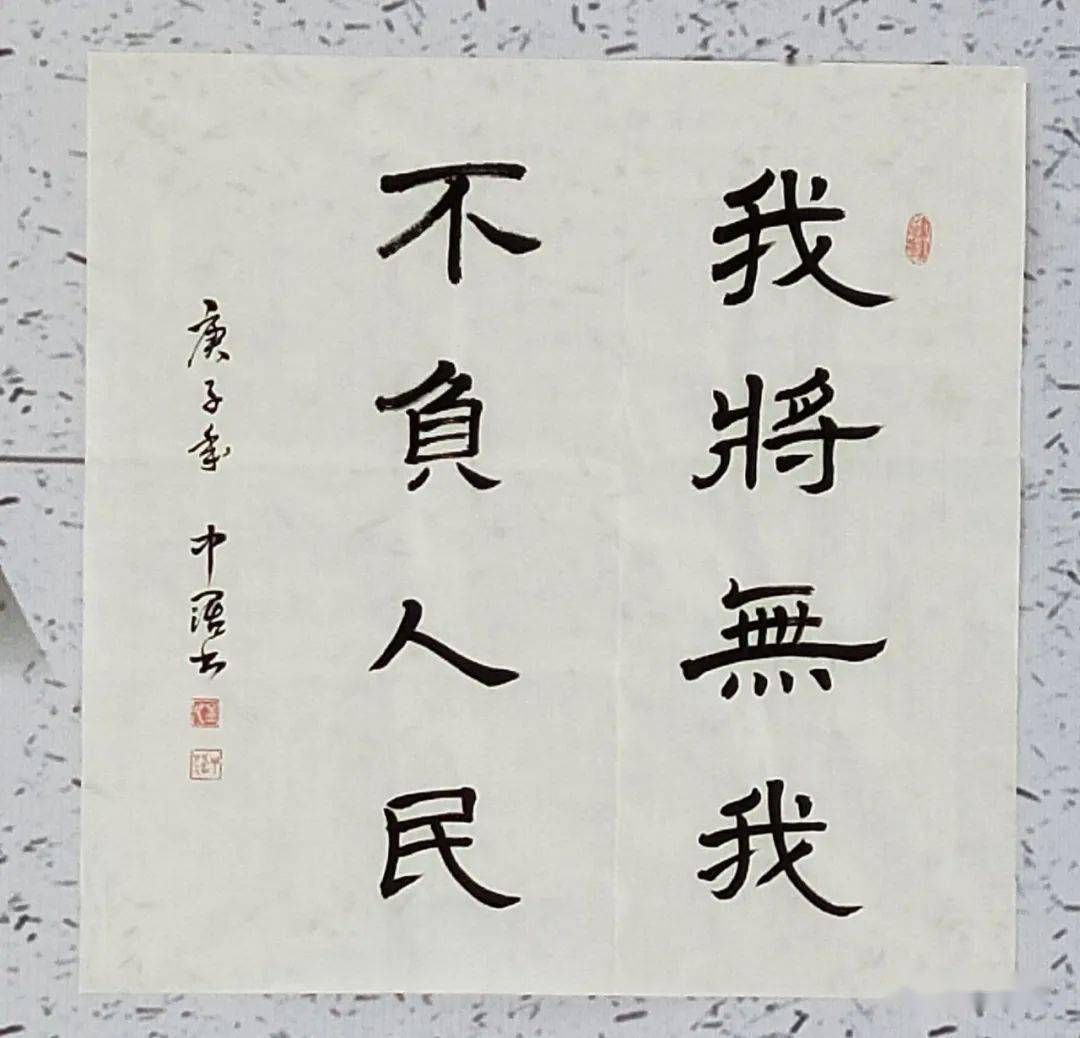 我將無我
不負人民
庚子年 中涵书